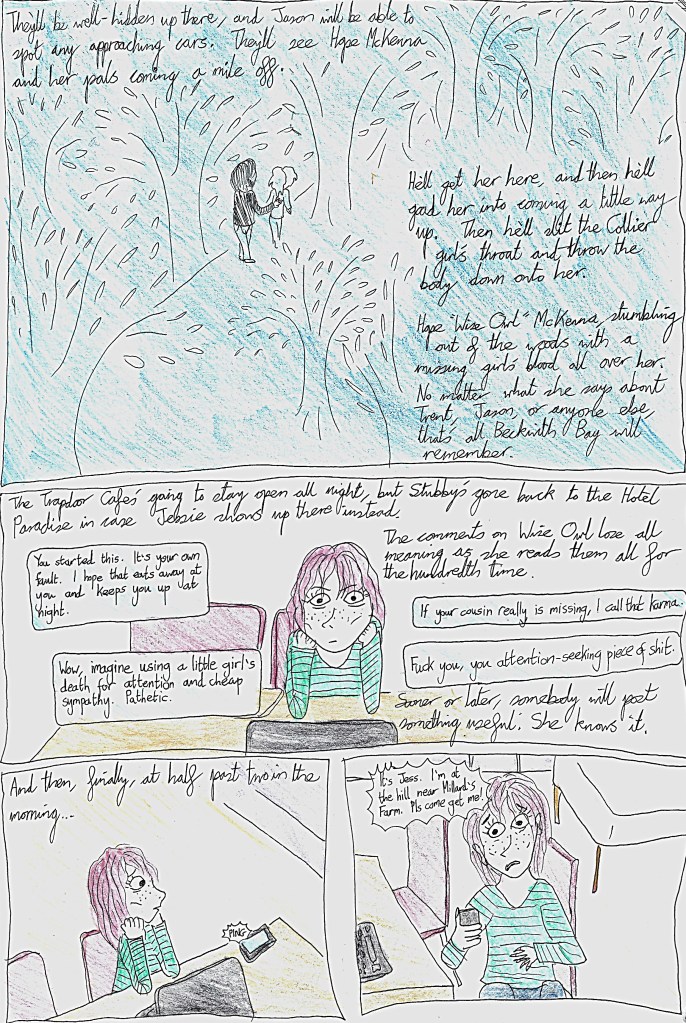 They'll be well-hidden up there, and Jason will be able to
spot any approaching cars. They'll see Hope McKenna
and her pals coming a mile off.
He'll get her here, and then he'll
goad her into coming a little way
up. Then he'll slit the Collier
girl's throat and throw the
body down onto her.
Hope "Wise Owl" McKenna, stumbling
out of the woods with a
missing girl's blood all over her.
No matter what she says about
Trent, Jason, or anyone else,
that's all Beckwith Bay will
remember.
The Trapdoor Cafe's going to stay open all night, but Stubby's gone back to the Hotel
Paradise in case Jessie shows up there instead.
The comments on Wise Owl lose all
meaning as she reads them all for
the hundredth time.
You started this. It's your own
fault. I hope that eats away at
you and keeps you up at
night.
If your cousin really is missing, I call that karma.
Wow, imagine using a little girl's
death for attention and cheap
sympathy. Pathetic.
Fuck you, you attention-seeking piece of shit.
Sooner or later, somebody will post
something useful. She knows it.
And then, finally, at half past two in the
morning...
PING
It's Jess. I'm at
the hill near Millard's
Farm. Pls come get me!